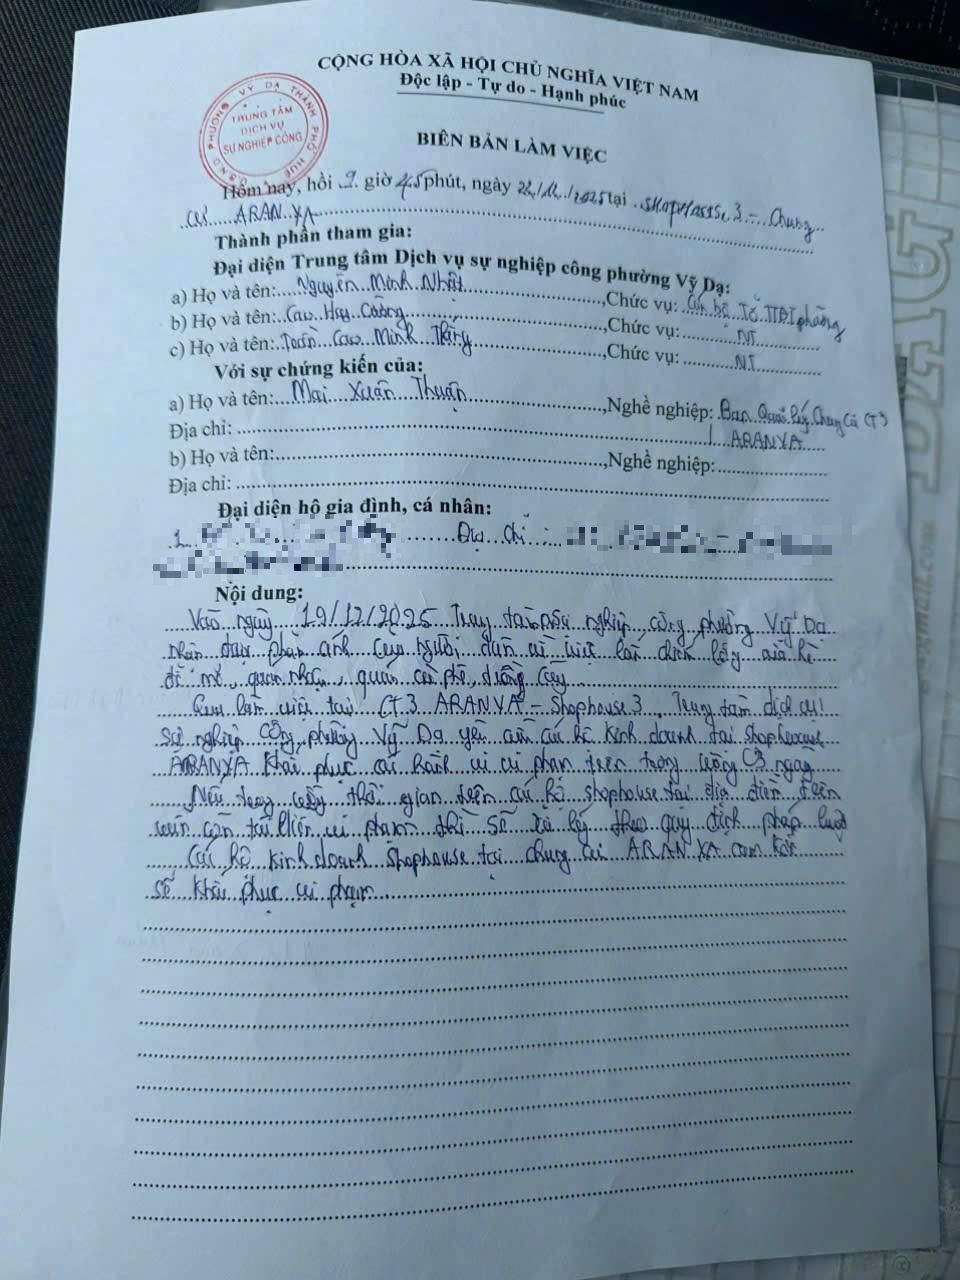 CỘNG HÒA XÃ HỘI CHỦ NGHĨA VIỆT NAM
Độc lập - Tự do - Hạnh phúc
UBND PHƯỜNG VỸ DẠ THÀNH PHỐ HUẾ
TRUNG TÂM
DỊCH VỤ
SỰ NGHIỆP CÔNG
BIÊN BẢN LÀM VIỆC
Hôm nay, hồi 9 giờ 45 phút, ngày 22/12/2025 tại Shophouse 3 - Chung
cư ARANYA
Thành phần tham gia:
Đại diện Trung tâm Dịch vụ sự nghiệp công phường Vỹ Dạ:
a) Họ và tên: Nguyễn Minh Nhật, Chức vụ: Cán bộ Tổ
b) Họ và tên: Cao Huy Cường, Chức vụ: NT
c) Họ và tên: Trần Cao Minh Thắng, Chức vụ: NT
Với sự chứng kiến của:
a) Họ và tên: Mai Xuân Thuận, Nghề nghiệp: Ban Quản lý Chung Cư CT3
Địa chỉ: ARANYA
b) Họ và tên:, Nghề nghiệp:
Địa chỉ:
Đại diện hộ gia đình, cá nhân:
1. Địa chỉ:
Nội dung:
Vào ngày 19/12/2025 Trung tâm sự nghiệp công phường Vỹ Dạ
nhận được phản ánh của người dân về việc lấn chiếm vỉa hè
để quán nhậu, quán cà phê,
Qua làm việc tại CT3 ARANYA - Shophouse 3, Trung tâm dịch vụ
Sự nghiệp Công phường Vỹ Dạ yêu cầu các hộ kinh doanh tại shophouse
ARANYA khắc phục các hành vi vi phạm trên trong vòng 03 ngày
Nếu trong thời gian trên các hộ shophouse tại địa điểm trên
vẫn còn vi phạm thì sẽ xử lý theo quy định pháp luật
Các hộ kinh doanh shophouse tại chung cư ARANYA cam kết
sẽ khắc phục vi phạm